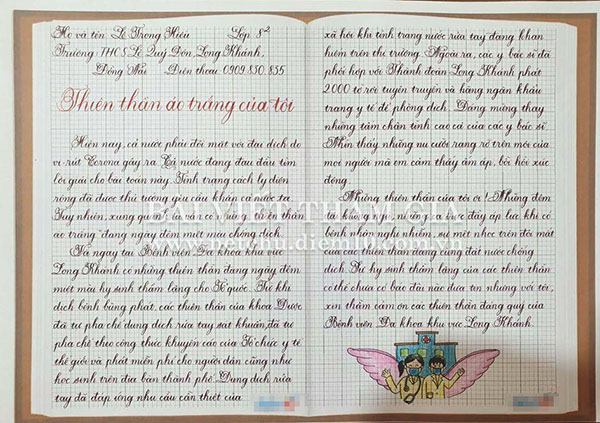 Họ và tên: Lê Trọng Hiếu Lớp 8²
Trường: THCS Lê Quý Đôn, Long Khánh,
Đồng Nai Điện thoại: 0909.830.835
Thiên thần áo trắng của tôi
Hiện nay, cả nước phải đối mặt với đại dịch do
vi-rút Corona gây ra. Cả nước đang đau đầu tìm
lời giải cho bài toán này. Tình trạng cách ly diện
rộng đã được thủ tướng yêu cầu khẩn cả nước ta.
Tuy nhiên, xung quanh ta vẫn có những "thiên thần
áo trắng" đang ngày đêm miệt mài chống dịch.
Và ngay tại Bệnh viện Đa khoa khu vực
Long Khánh có những thiên thần đang ngày đêm
miệt mài hy sinh thầm lặng cho Tổ quốc. Từ khi
dịch bệnh bùng phát, các thiên thần của khoa Dược
đã tự pha chế dung dịch rửa tay sát khuẩn, đã tự
pha chế theo công thức khuyến cáo của Tổ chức y tế
thế giới và phát miễn phí cho người dân cũng như
học sinh trên địa bàn thành phố. Dung dịch rửa
tay đã đáp ứng nhu cầu cần thiết của
xã hội khi tình trạng nước rửa tay đang khan
hiếm trên thị trường. Ngoài ra, các y bác sĩ đã
phối hợp với Thành đoàn Long Khánh phát
2000 tờ rơi tuyên truyền và hàng ngàn khẩu
trang y tế để phòng dịch. Đáng mừng thay
những tấm chân tình cao cả của các y bác sĩ.
Nhìn thấy những nụ cười rạng rỡ trên môi của
mọi người mà em cảm thấy ấm áp, bồi hồi xúc
động.
Những thiên thần của tôi ơi! Những đêm
dài không ngủ, những ca trực đầy áp lực, khi có
bệnh nhân nghi nhiễm, sự mệt nhọc trên đôi mắt
của các thiên thần đang cùng đất nước chống
dịch. Sự hy sinh thầm lặng của các thiên thần
có thể chưa có báo đài nào đưa tin nhưng với tôi,
xin thầm cảm ơn các thiên thần đáng quý của
Bệnh viện Đa khoa khu vực Long Khánh.
BÚT VIỆT THẨM GIA
www.netchu.diem10.com.vn